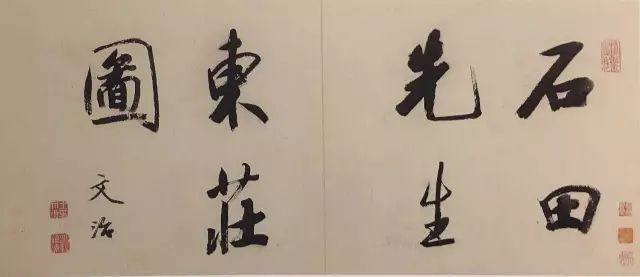 石田
先生
東莊
圖
文治